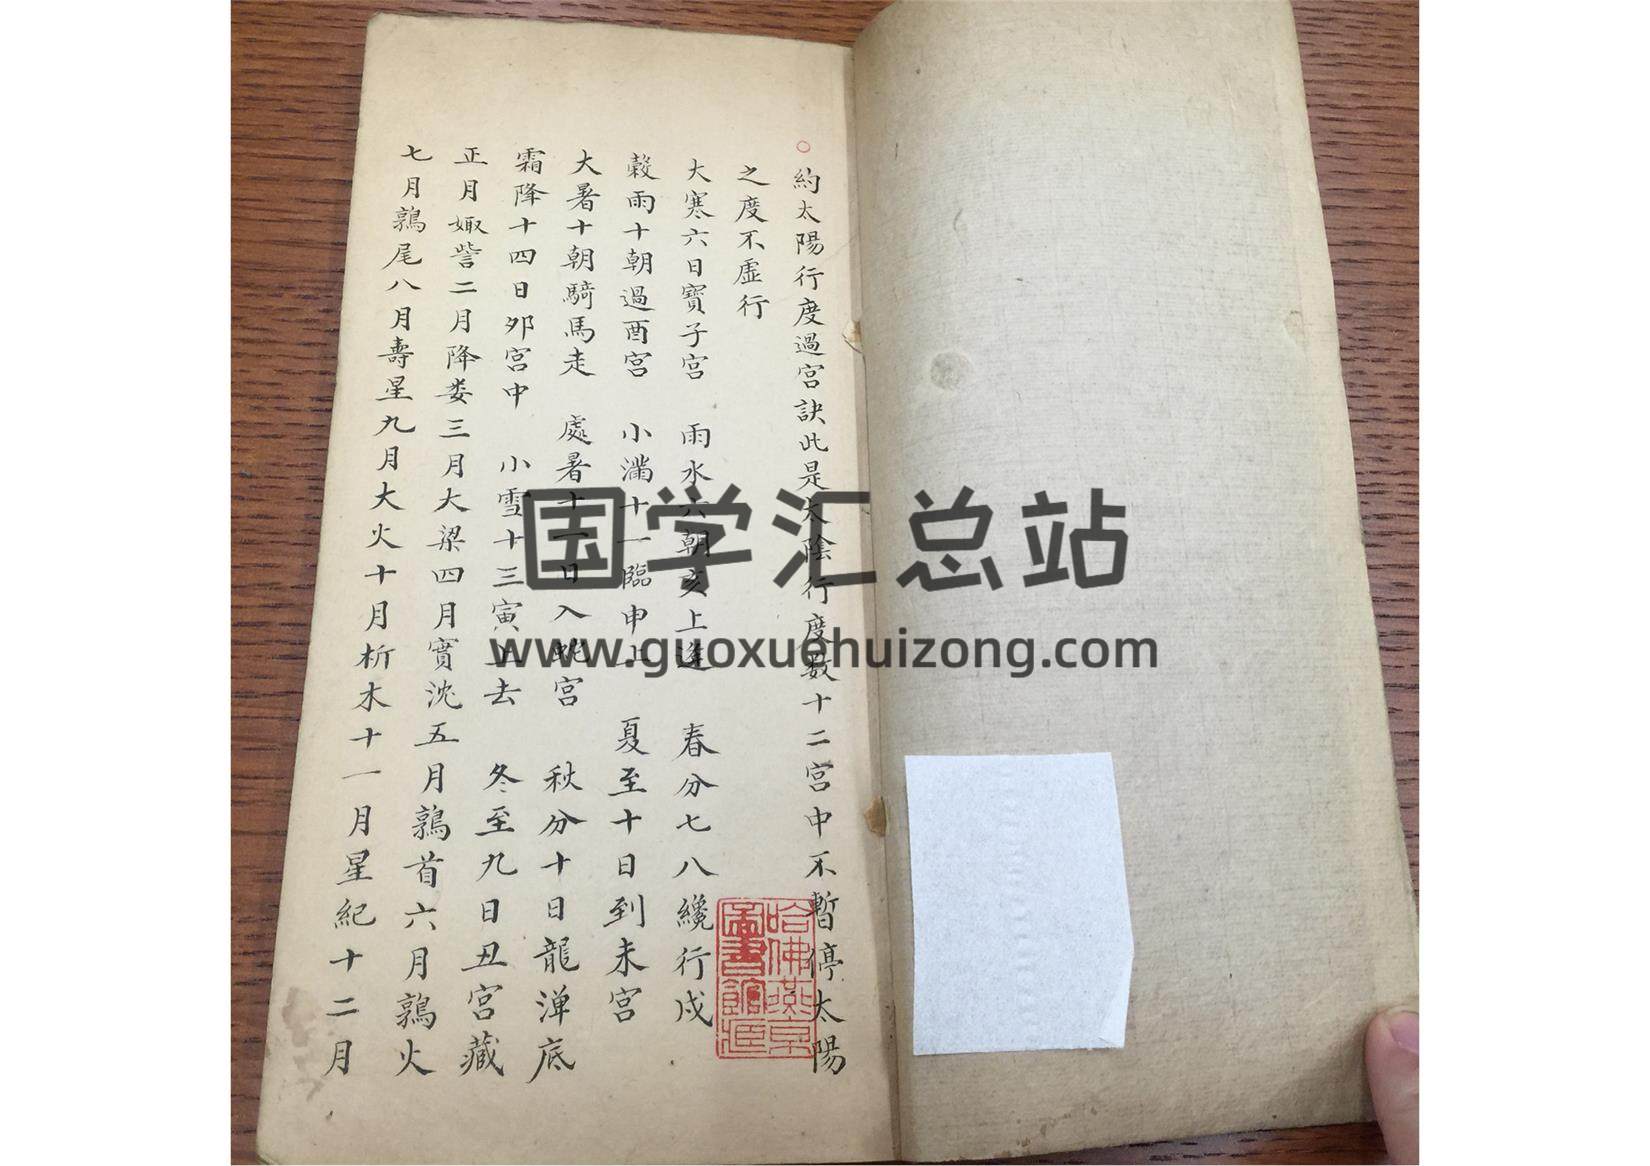 約太陽行度過宮訣此是太陰行度數十二宮中不暫停太陽
之度不虛行
大寒六日寶子宮　雨水六朝亥上逢　春分七八纔行戌
穀雨十朝過酉宮　小滿十一臨申上　夏至十日到未宮
大暑十朝騎馬走　處暑十一日入蛇宮　秋分十日龍潭底
霜降十四日夘宮中　小雪十三寅上去　冬至九日丑宮藏
正月娵訾二月降娄三月大梁四月實沈五月鶉首六月鶉火
七月鶉尾八月壽星九月大火十月析木十一月星紀十二月
哈佛燕京
圖書館
国学汇总站
www.guoxuehuizong.com